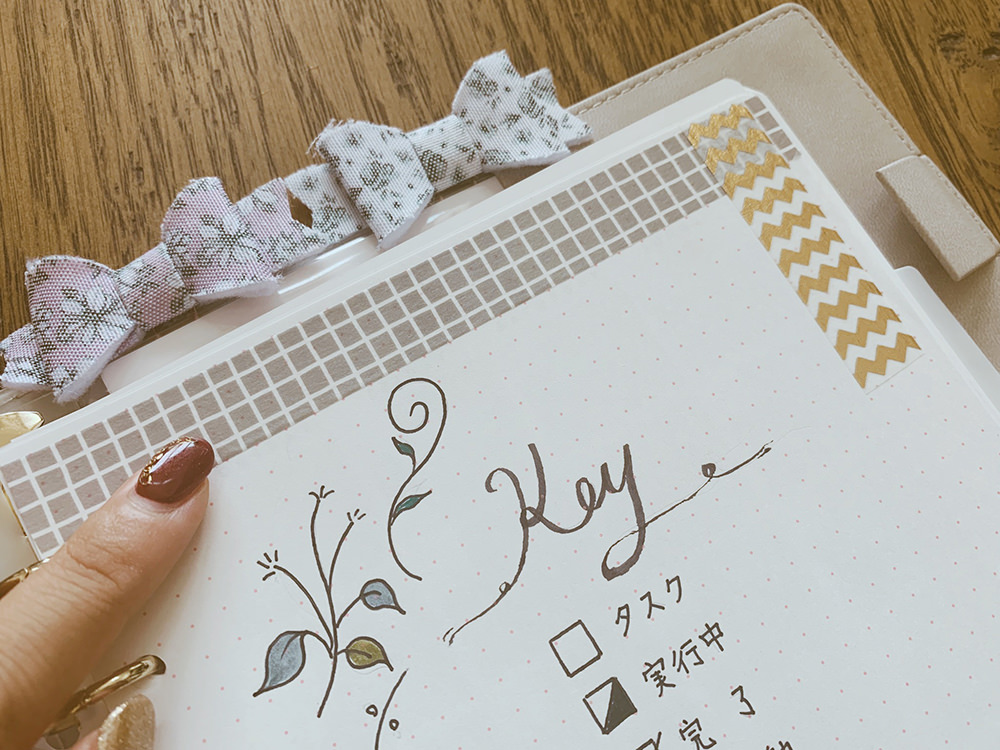 Key
タスク
実行中
完了